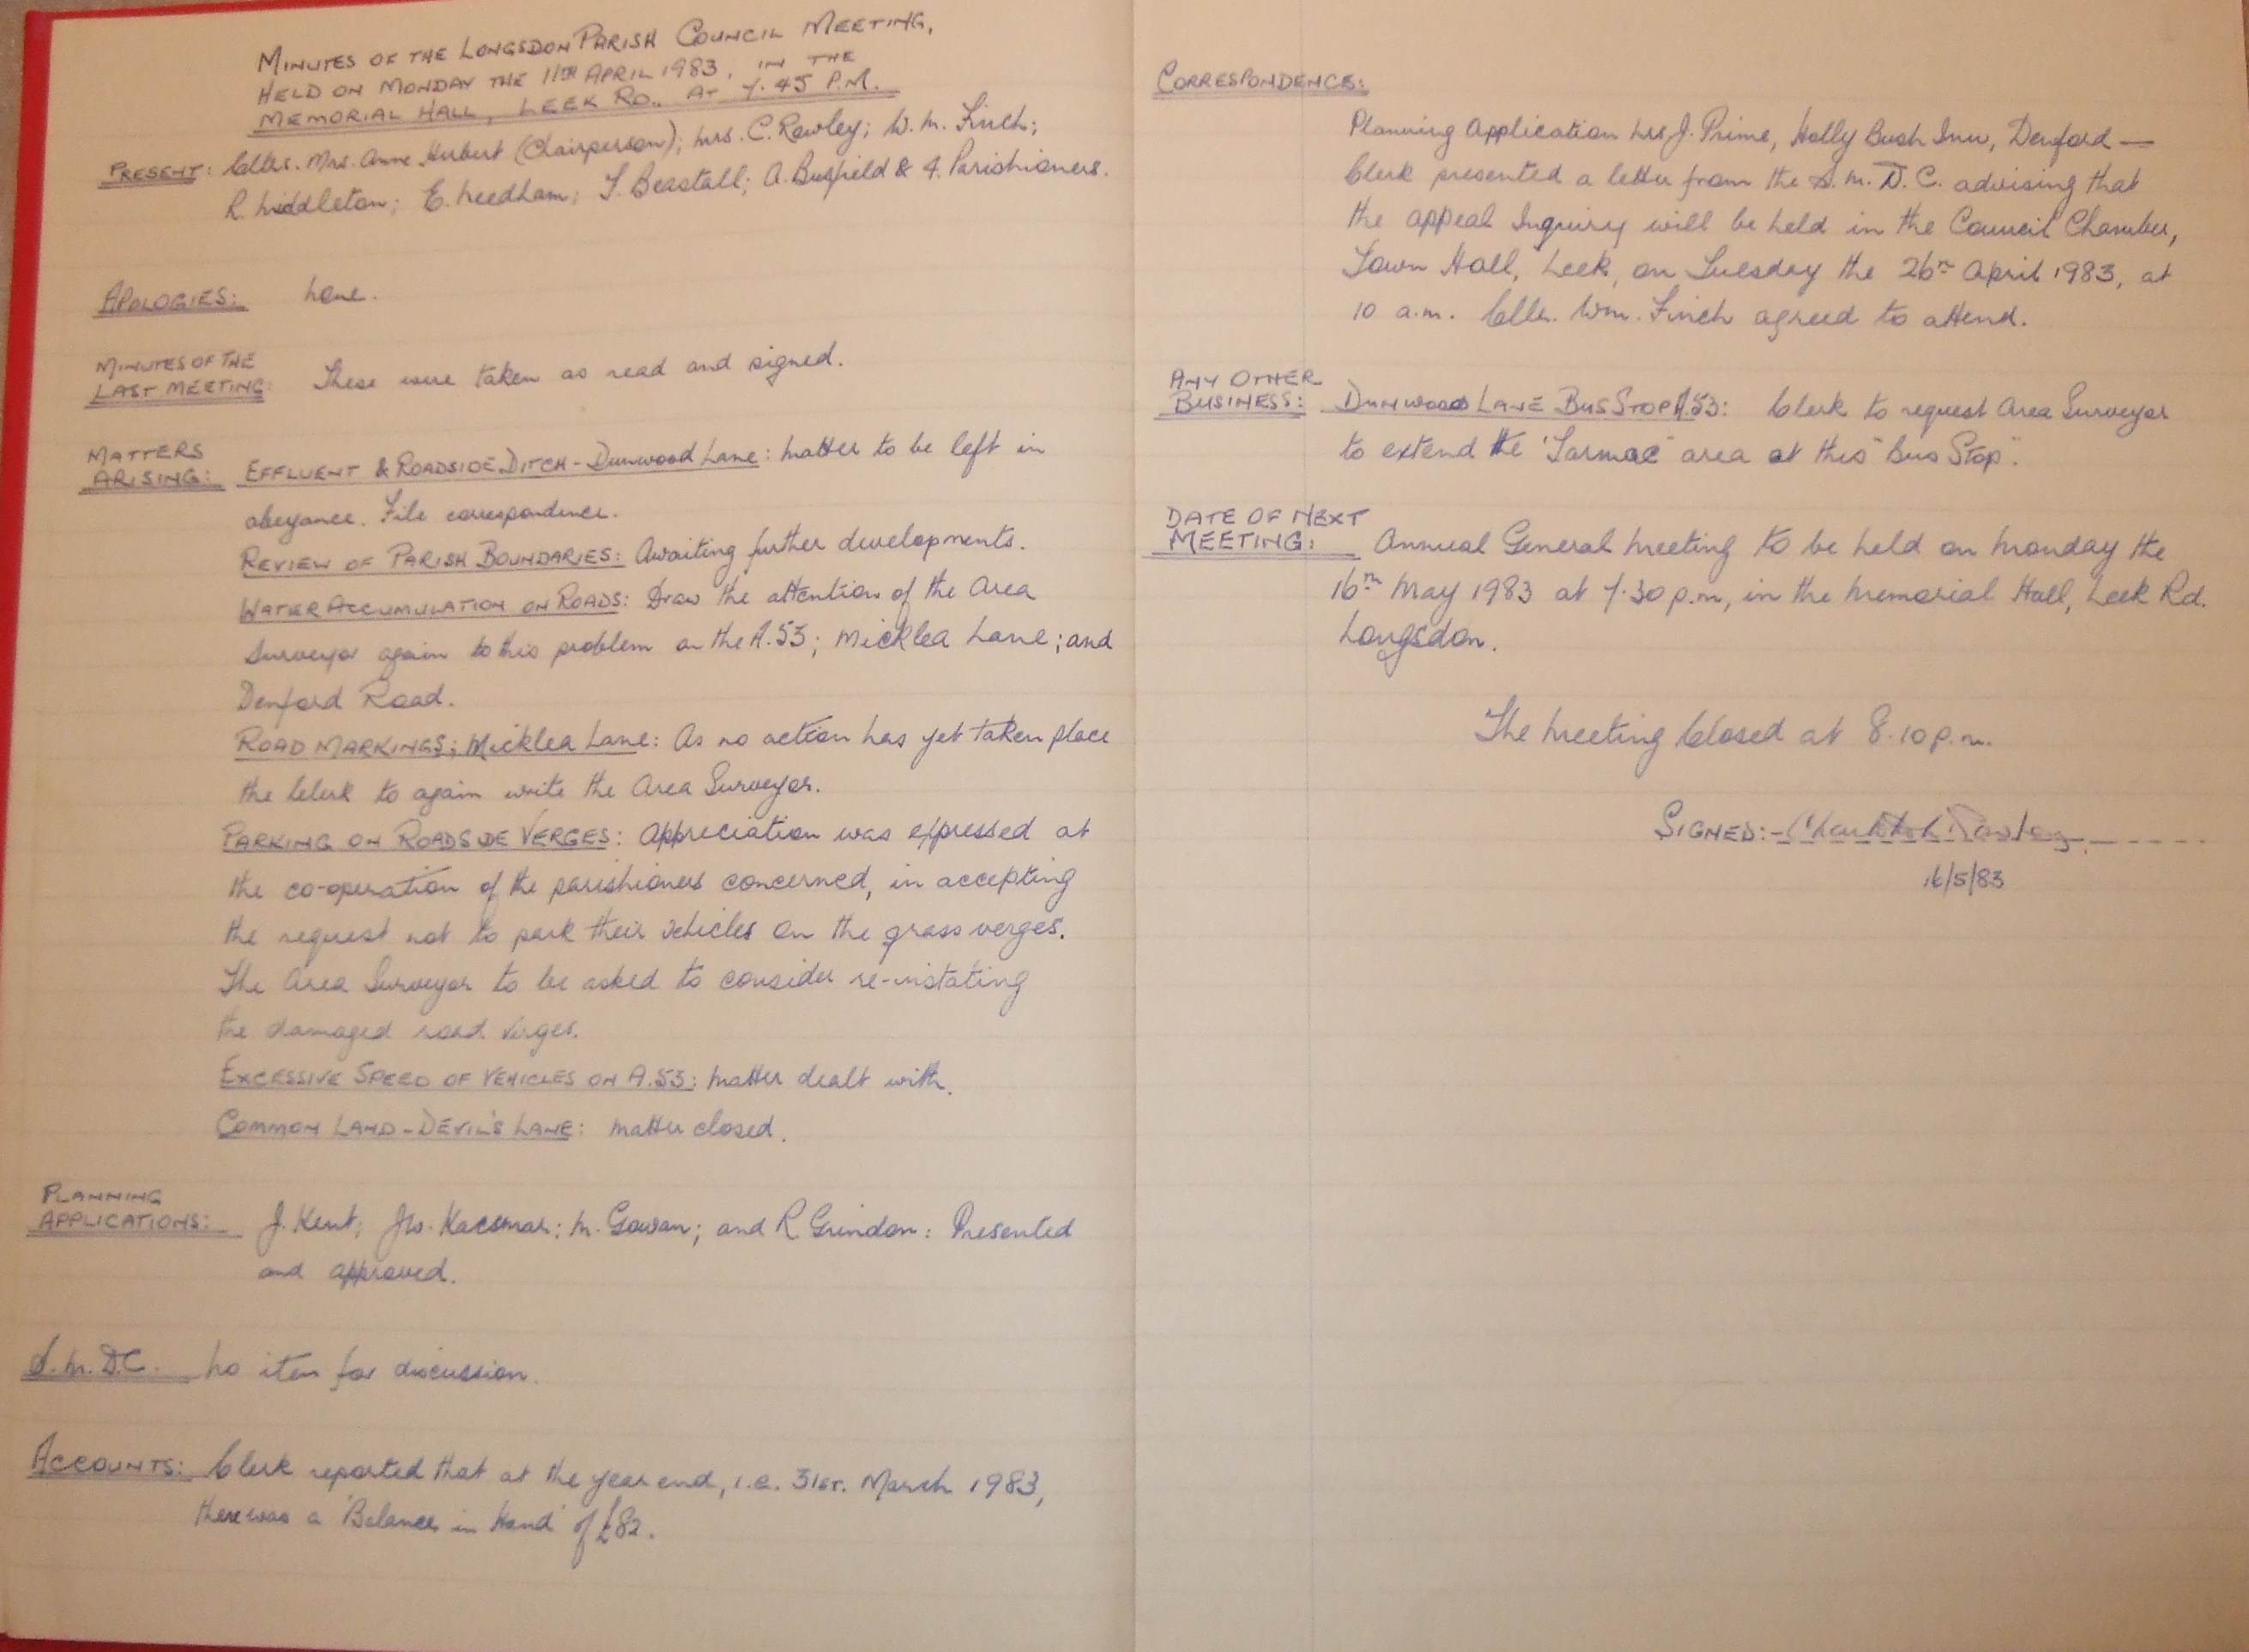 MINUTES OF THE LONGSDON PARISH COUNCIL MEETING,
HELD ON MONDAY THE 11TH APRIL 1983, IN THE
MEMORIAL HALL, LEEK RD., AT 7.45 P.M.
PRESENT: Cllrs. Mrs. Anne Herbert (Chairperson); Mrs. C. Rowley; W. M. Finch;
R. Middleton; E. Needham; T. Beastall; A. Busfield & 4. Parishioners.
APOLOGIES: None.
MINUTES OF THE
LAST MEETING: These were taken as read and signed.
MATTERS
ARISING: EFFLUENT & ROADSIDE DITCH - Dunwood Lane: Matter to be left in
abeyance. File correspondence.
REVIEW OF PARISH BOUNDARIES: Awaiting further developments.
WATER ACCUMULATION ON ROADS: Draw the attention of the Area
Surveyor again to this problem on the A.53; Micklea Lane; and
Denford Road.
ROAD MARKINGS; Micklea Lane: As no action has yet taken place
the Clerk to again write the Area Surveyor.
PARKING ON ROADSIDE VERGES: Appreciation was expressed at
the co-operation of the parishioners concerned, in accepting
the request not to park their vehicles on the grass verges.
The Area Surveyor to be asked to consider re-instating
the damaged road verges.
EXCESSIVE SPEED OF VEHICLES ON A.53: Matter dealt with.
COMMON LAND - DEVIL'S LANE: Matter closed.
PLANNING
APPLICATIONS: J. Kent; J.W. Kacsmar; M. Gowan; and R. Grindon: Presented
and approved.
S.M.D.C. No item for discussion.
ACCOUNTS: Clerk reported that at the year end, i.e. 31ST. March 1983,
there was a 'Balance in Hand' of £82.
CORRESPONDENCE:
Planning Application Mrs J. Prime, Holly Bush Inn, Denford —
Clerk presented a letter from the S.M.D.C. advising that
the appeal Inquiry will be held in the Council Chamber,
Town Hall, Leek, on Tuesday the 26TH April 1983, at
10 a.m. Cllr. Wm. Finch agreed to attend.
ANY OTHER
BUSINESS: DUNWOOD LANE BUS STOP A.53: Clerk to request Area Surveyor
to extend the 'Tarmac' area at this "Bus Stop".
DATE OF NEXT
MEETING: Annual General Meeting to be held on Monday the
16TH May 1983 at 7.30 p.m, in the Memorial Hall, Leek Rd.
Longsdon.
The Meeting Closed at 8.10 p.m.
SIGNED:- Rowley
16/5/83